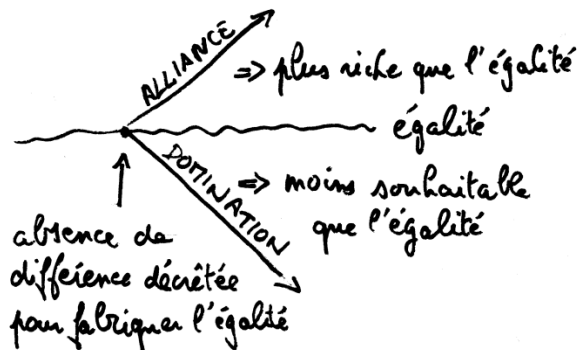 ALLIANCE
=> plus riche que l'égalité
égalité
DOMINATION
=> moins souhaitable
que l'égalité
absence de
différence décrétée
pour fabriquer l'égalité